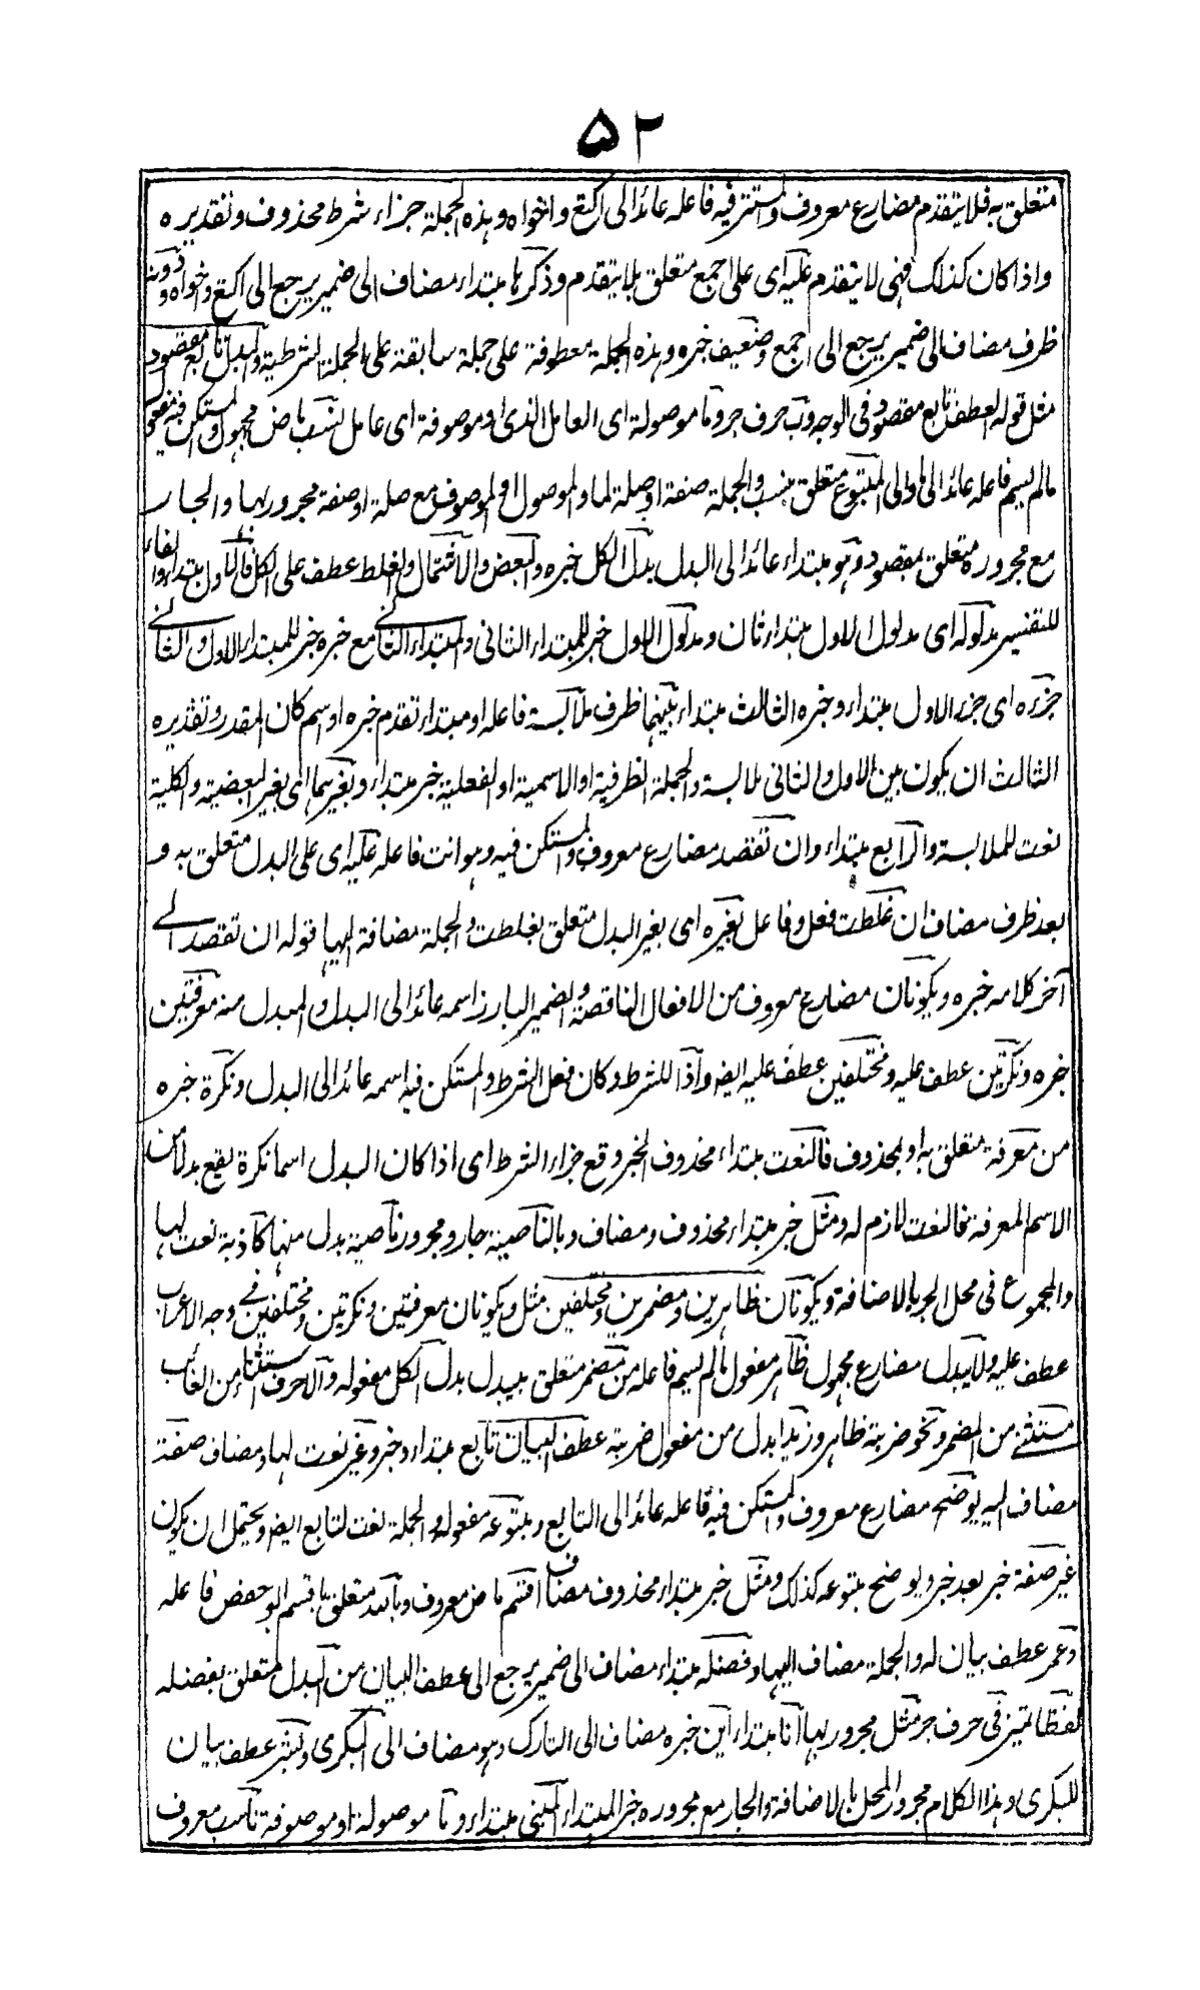 ۵۲
متعلق به فلا يتقدم مضارع معروف والمستتر فيه فاعله عائد الى اكتع واخواه وهذه الجملة جزاء شرط محذوف وتقديره
واذا كان كذلك فهى لا يتقدم عليه اى على اجمع متعلق بلا يتقدم وذكرها مبتداء مضاف الى ضمير يرجع الى اكتع واخواه ودونه
ظرف مضاف الى ضمير يرجع الى اجمع وضعيف خبره وهذه الجملة معطوفة على جملة سابقة على الجملة الشرطية والبدل تابع مقصود
مثل قوله العطف تابع مقصود فى الوجه وب حرف جر وما موصولة اى العامل الذى او موصوفة اى عامل نسب ماض مجهول والمستكن فيه مفعول
مالم يسم فاعله عائد الى ما والى المتبوع متعلق بنسب والجملة صفة او صلة لما والموصول او الموصوف مع صلة او صفة مجرور بها والجار
مع مجروره متعلق بمقصود وهو مبتداء عائد الى البدل بدل الكل خبره والبعض والاشتمال والغلط عطف على الكل فالاول مبتداء والفاء
للتفسير مدلوله اى مدلول الاول مبتداء ثان ومدلول الاول خبر للمبتداء الثانى والمبتداء الثانى مع خبره خبر للمبتداء الاول والثانى
جزءه اى جزء الاول مبتداء وخبره الثالث مبتداء بينهما ظرف ملابسة فاعله او مبتداء تقدم خبره او اسم كان المقدر وتقديره
الثالث ان يكون بين الاول والثانى ملابسة والجملة الظرفية او الاسمية او الفعلية خبر مبتداء وبغيرهما اى بغير البعضية والكلية
نعت للملابسة والرابع مبتداء وان تقصد مضارع معروف والمستكن فيه وهو انت فاعله عليه اى على البدل متعلق به و
بعد ظرف مضاف ان غلطت فعل وفاعل بغيره اى بغير البدل متعلق بغلطت والجملة مضافة اليها قوله ان تقصد الى
آخر كلامه خبره ويكونان مضارع معروف من الافعال الناقصة والضمير البارز اسمه عائد الى البدل والمبدل منه معرفتين
خبره ونكرتين عطف عليه ومختلفين عطف عليه ايضه واذا للشرط وكان فعل الشرط والمستكن فيه اسمه عائد الى البدل ونكرة خبره
من معرفة متعلق به او بمحذوف فالنعت مبتداء محذوف الخبر وقع جزاء الشرط اى اذا كان البدل اسما نكرة يقع بدلا من
الاسم المعرفة فالنعت لازم له ومثل خبر مبتداء محذوف ومضاف وبالناصية جار ومجرور ناصية بدل منها كاذبة نعت لها
والمجموع فى محل الجر بالاضافة ويكونان ظاهرين ومضمرين ومختلفين مثل ويكونان معرفتين ونكرتين ومختلفين فى وجه الاعراب
عطف عليه ولا يبدل مضارع مجهول ظاهر مفعول مالم يسم فاعله من مضمر متعلق بيبدل بدل الكل مفعوله والا حرف استثناء من الغائب
مستثنى من المضمر ونحو ضربته ظاهر وزيدا بدل من مفعول ضربته عطف البيان تابع مبتداء وخبر وغير نعت لها ومضاف صفة
مضاف اليه يوضح مضارع معروف والمستكن فيه فاعله عائد الى التابع ومتبوعه مفعوله والجملة نعت لتابع ايضه ويحتمل ان يكون
غير صفة خبر بعد خبر ويوضح متبوعه كذلك ومثل خبر مبتداء محذوف مضاف اقسم ماض معروف وبالله متعلق باقسم ابو حفص فاعله
وعمر عطف بيان له والجملة مضاف اليها وفصله مبتداء مضاف الى ضمير يرجع الى عطف البيان من البدل متعلق بفصله
لفظا تميز فى حرف جر مثل مجرور بها انا مبتداء ابن خبره مضاف الى التارك وهو مضاف الى البكرى وبشر عطف بيان
للبكرى وهذا الكلام مجرور المحل بالاضافة والجار مع مجروره خبر المبتداء المبنى مبتداء وما موصولة او موصوفة ناسب معروف